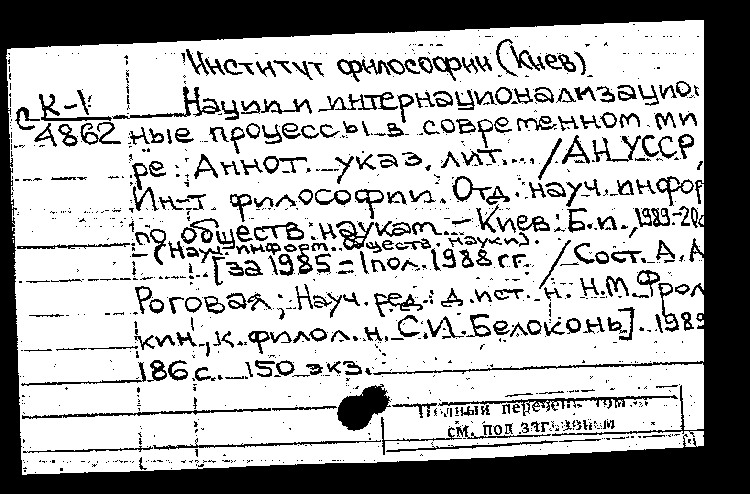 Институт философии (Киев)
С К-1 Нации и интернационализацион
4862 ные процессы в современном ми
ре: Аннот. указ. лит... / АН УССР,
Ин-т философии. Отд. науч. информ
по обществ. наукам. - Киев: Б.и., 1989-20с
- (Науч. информ. Обществ. науки).
[за 1985 - 1 пол. 1988 гг. / Сост. А.А
Роговая; Науч. ред.: д. ист. н. Н.М. Фрол
кин, к. филол. н. С.И. Белоконь]. 1989
186 с. 150 экз.
Полный перечень томов
см. под заглавием